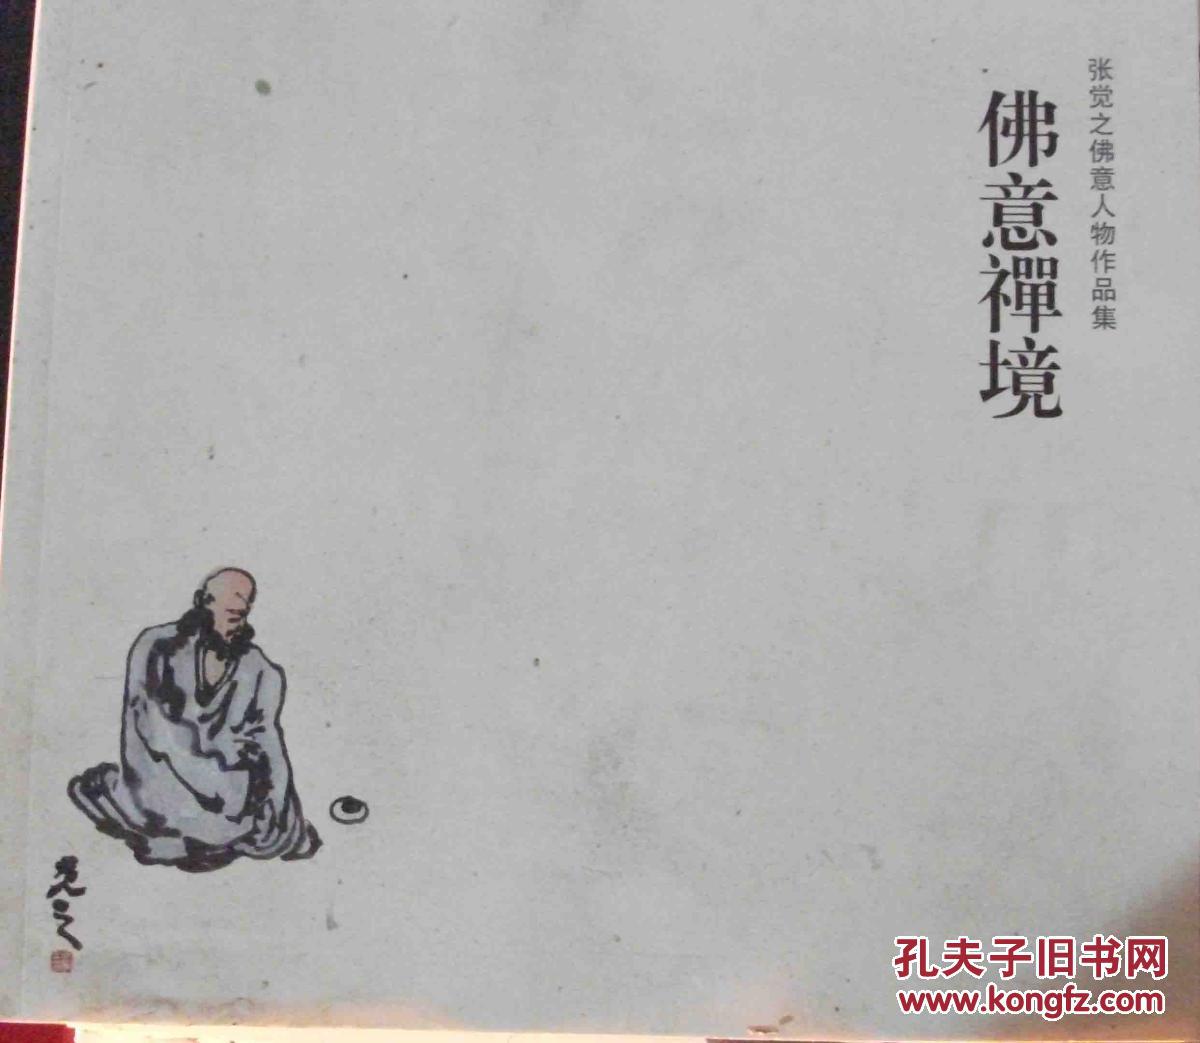 张觉之佛意人物作品集
佛意禪境
觉之
孔夫子旧书网
www.kongfz.com